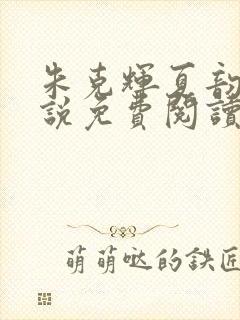 朱克輝夏韵
說免費閱讀
萌萌哒的鉄匠